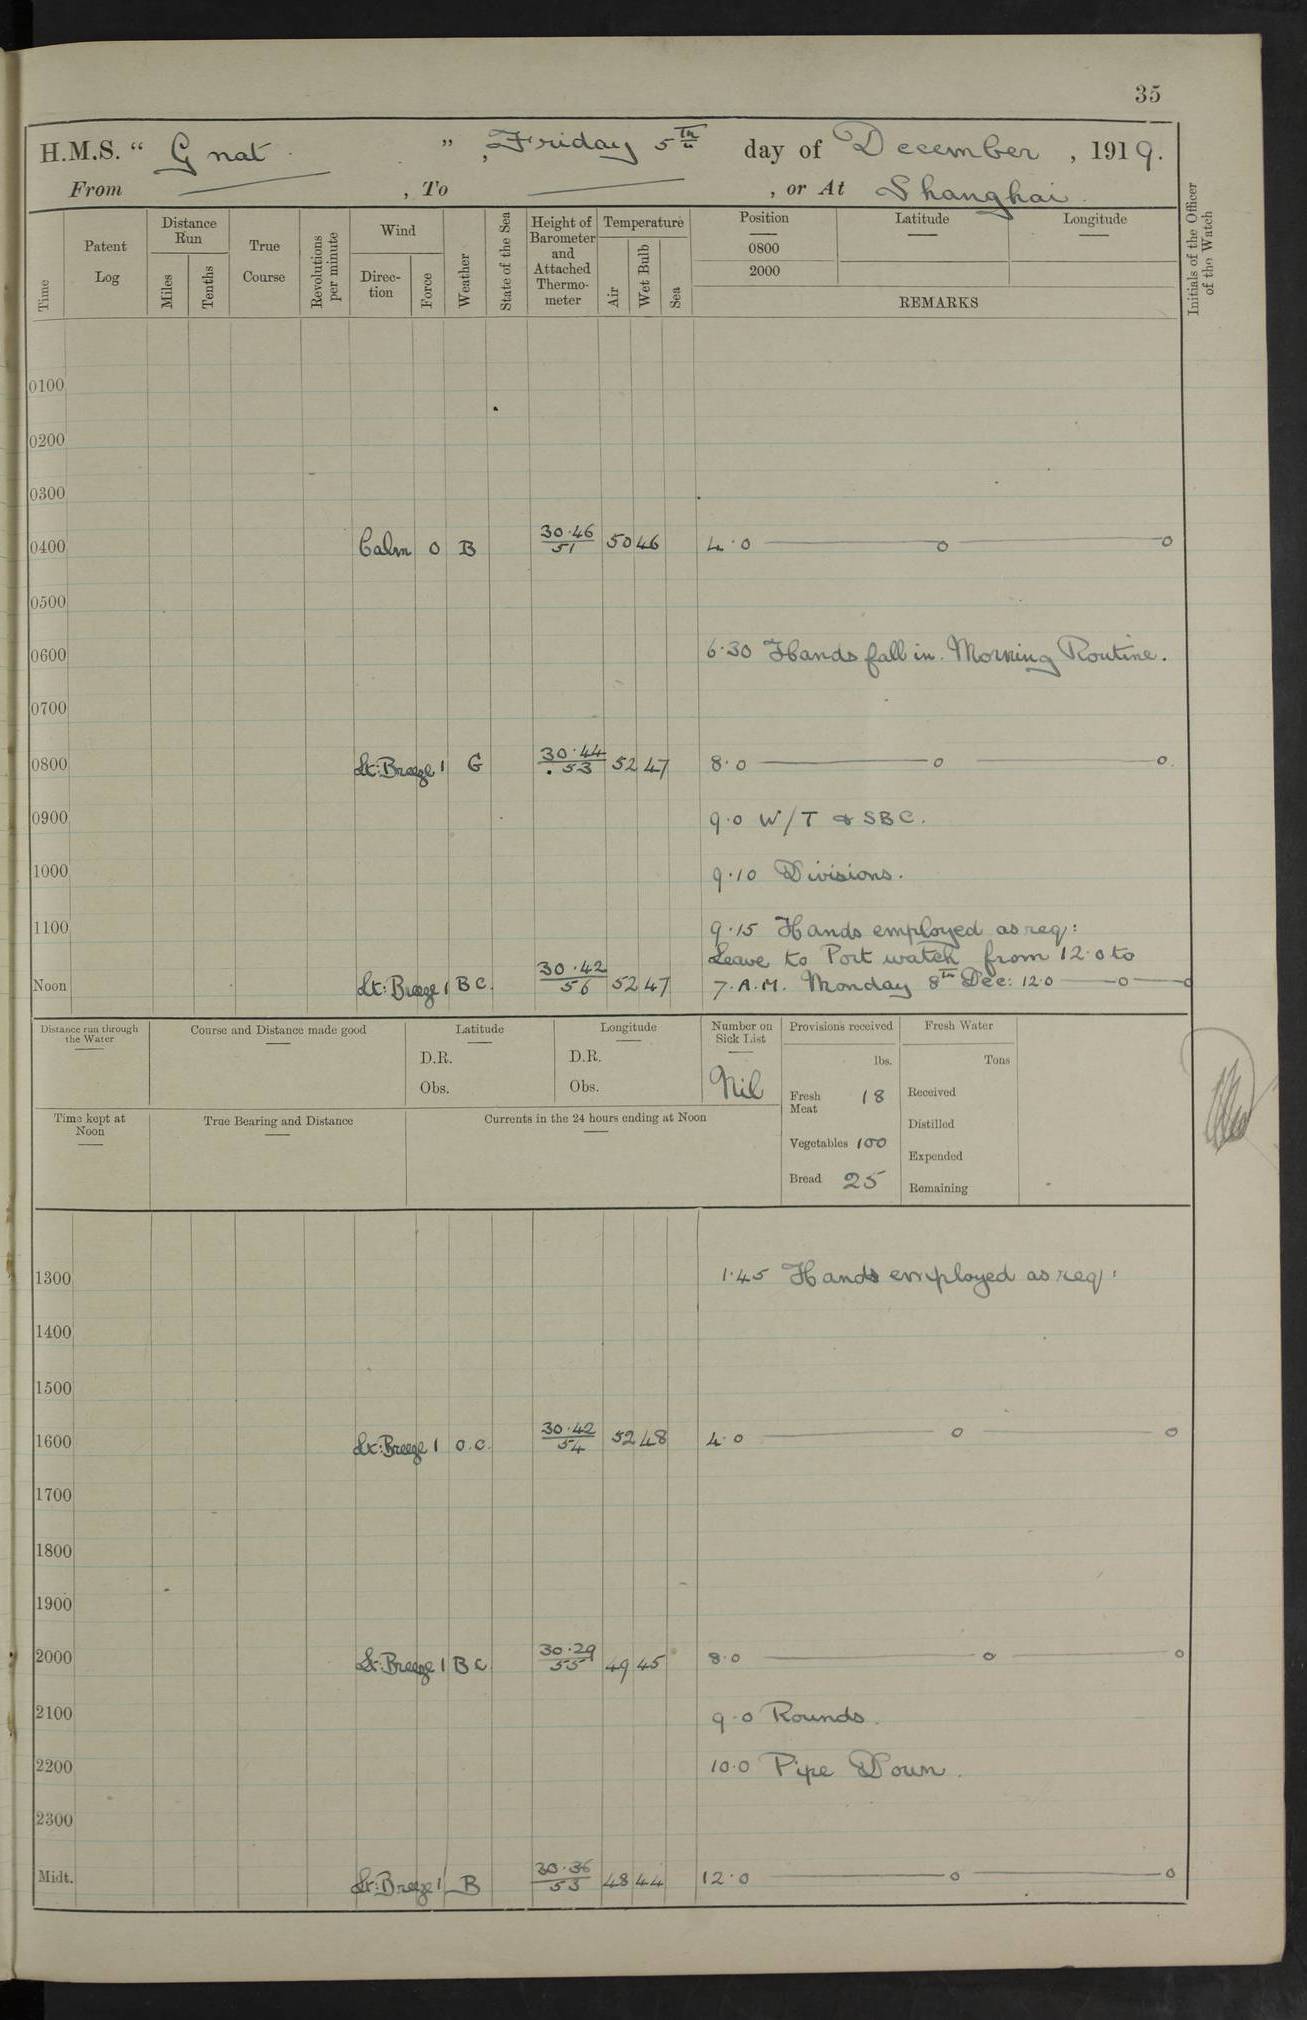 35
H.M.S. “ Gnat ” , Friday 5th day of December , 1919.
From , To , or At Shanghai.
Time
Patent Log
Distance Run
Miles
Tenths
True Course
Revolutions per minute
Wind
Direction
Force
Weather
State of the Sea
Height of Barometer and Attached Thermometer
Temperature
Air
Wet Bulb
Sea
Position
Latitude
Longitude
0800
2000
REMARKS
Initials of the Officer of the Watch
0100
0200
0300
0400 Calm 0 B 30·46/51 50 46 4·0 ——o——o
0500
0600 6·30 Hands fall in. Morning Routine.
0700
0800 Lt: Breeze 1 G 30·44/53 52 47 8·0 ——o——o
0900 9·0 W/T & SBC.
1000 9·10 Divisions.
1100 9·15 Hands employed as req:
Leave to Port watch from 12·0 to
Noon Lt: Breeze 1 BC. 30·42/56 52 47 7.A.M. Monday 8th Dec: 12·0 ——o——o
Distance run through the Water
Course and Distance made good
Latitude
D.R.
Obs.
Longitude
D.R.
Obs.
Number on Sick List
Nil
Provisions received
lbs.
Fresh Meat 18
Vegetables 100
Bread 25
Fresh Water
Tons
Received
Distilled
Expended
Remaining
Time kept at Noon
True Bearing and Distance
Currents in the 24 hours ending at Noon
1300 1·45 Hands employed as req:
1400
1500
1600 Lt: Breeze 1 O.C. 30·42/54 52 48 4·0 ——o——o
1700
1800
1900
2000 Lt: Breeze 1 BC 30·29/55 49 45 8·0 ——o——o
2100 9·0 Rounds.
2200 10·0 Pipe Down.
2300
Midt. Lt: Breeze 1 B 30·36/53 48 44 12·0 ——o——o